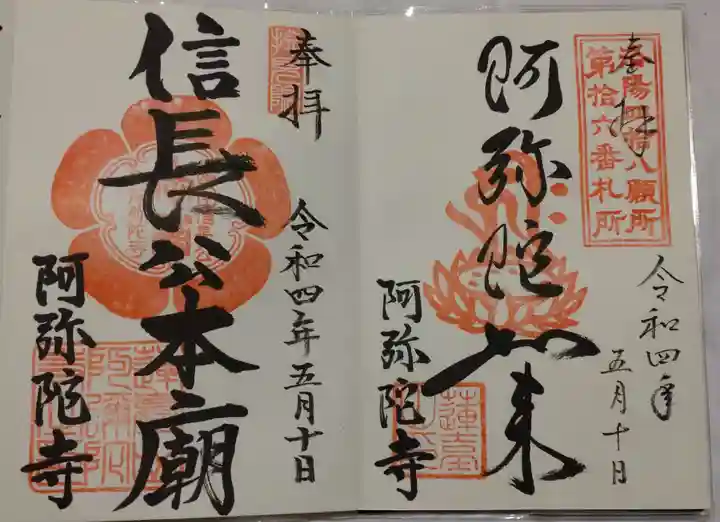 奉拝
洛陽四拾八願所
第拾六番札所
阿弥陀如来
令和四年
五月十日
阿弥陀寺
蓮臺
奉拝
信長公本廟
令和四年五月十日
阿弥陀寺